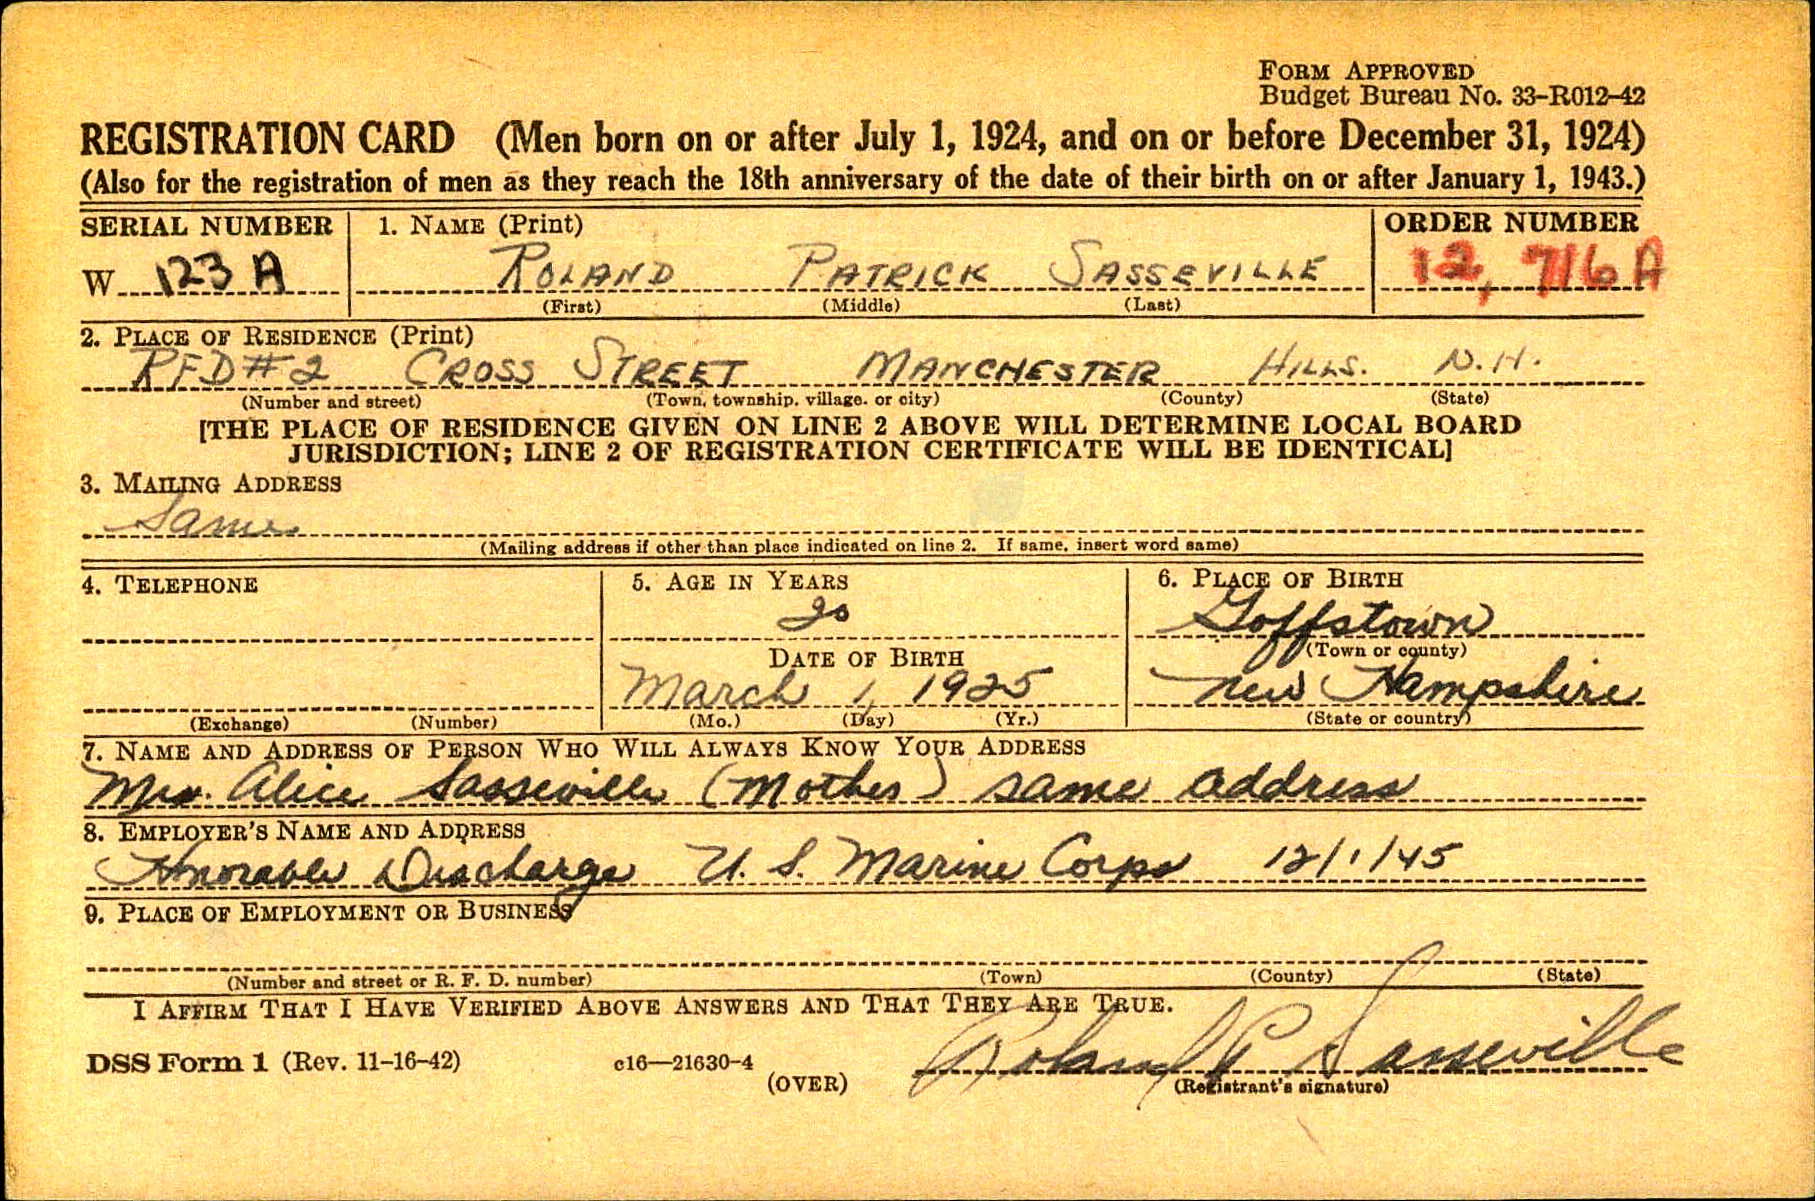 FORM APPROVED
Budget Bureau No. 33-R012-42
REGISTRATION CARD (Men born on or after July 1, 1924, and on or before December 31, 1924)
(Also for the registration of men as they reach the 18th anniversary of the date of their birth on or after January 1, 1943.)
SERIAL NUMBER 1. NAME (Print) ORDER NUMBER
W 123 A ROLAND PATRICK SASSEVILLE 12,716 A
(First) (Middle) (Last)
2. PLACE OF RESIDENCE (Print)
RFD#2 CROSS STREET MANCHESTER HILLS. N.H.
(Number and street) (Town, township, village, or city) (County) (State)
[THE PLACE OF RESIDENCE GIVEN ON LINE 2 ABOVE WILL DETERMINE LOCAL BOARD
JURISDICTION; LINE 2 OF REGISTRATION CERTIFICATE WILL BE IDENTICAL]
3. MAILING ADDRESS
Same
(Mailing address if other than place indicated on line 2. If same, insert word same)
4. TELEPHONE 5. AGE IN YEARS 6. PLACE OF BIRTH
20 Goffstown
DATE OF BIRTH (Town or county)
March 1, 1925 New Hampshire
(Exchange) (Number) (Mo.) (Day) (Yr.) (State or country)
7. NAME AND ADDRESS OF PERSON WHO WILL ALWAYS KNOW YOUR ADDRESS
Mrs. Alice Sasseville (Mother) same address
8. EMPLOYER'S NAME AND ADDRESS
Honorable Discharge U. S. Marine Corps 12/1/45
9. PLACE OF EMPLOYMENT OR BUSINESS
(Number and street or R. F. D. number) (Town) (County) (State)
I AFFIRM THAT I HAVE VERIFIED ABOVE ANSWERS AND THAT THEY ARE TRUE.
DSS Form 1 (Rev. 11-16-42) c16—21630-4 Roland P Sasseville
(OVER) (Registrant's signature)